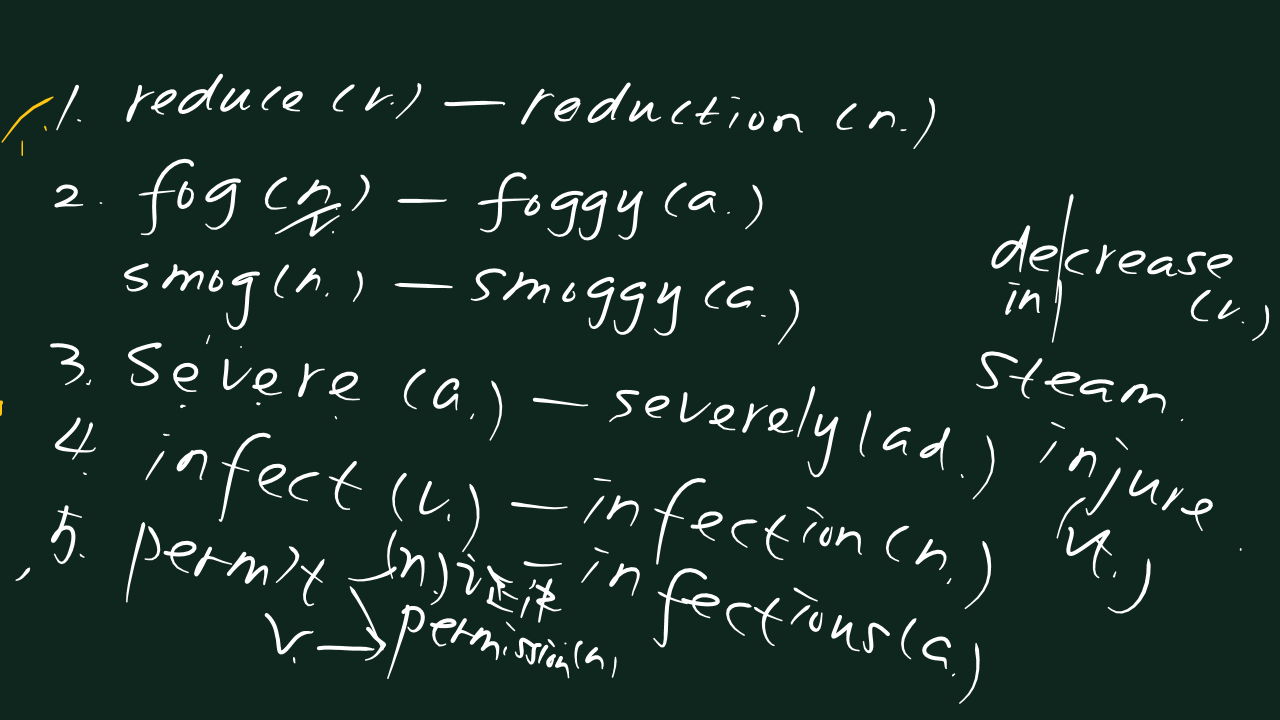 1. reduce (v.) — reduction (n.)
2. fog (n./v.) — foggy (a.)
smog (n.) — smoggy (a.)
3. Severe (a.) — severely (ad.)
4. infect (v.) — infection (n.)
— infectious (a.)
5. permit (n.) 证件
v. → permission (n)
decrease
in (v.)
Steam.
injure.
(v.)